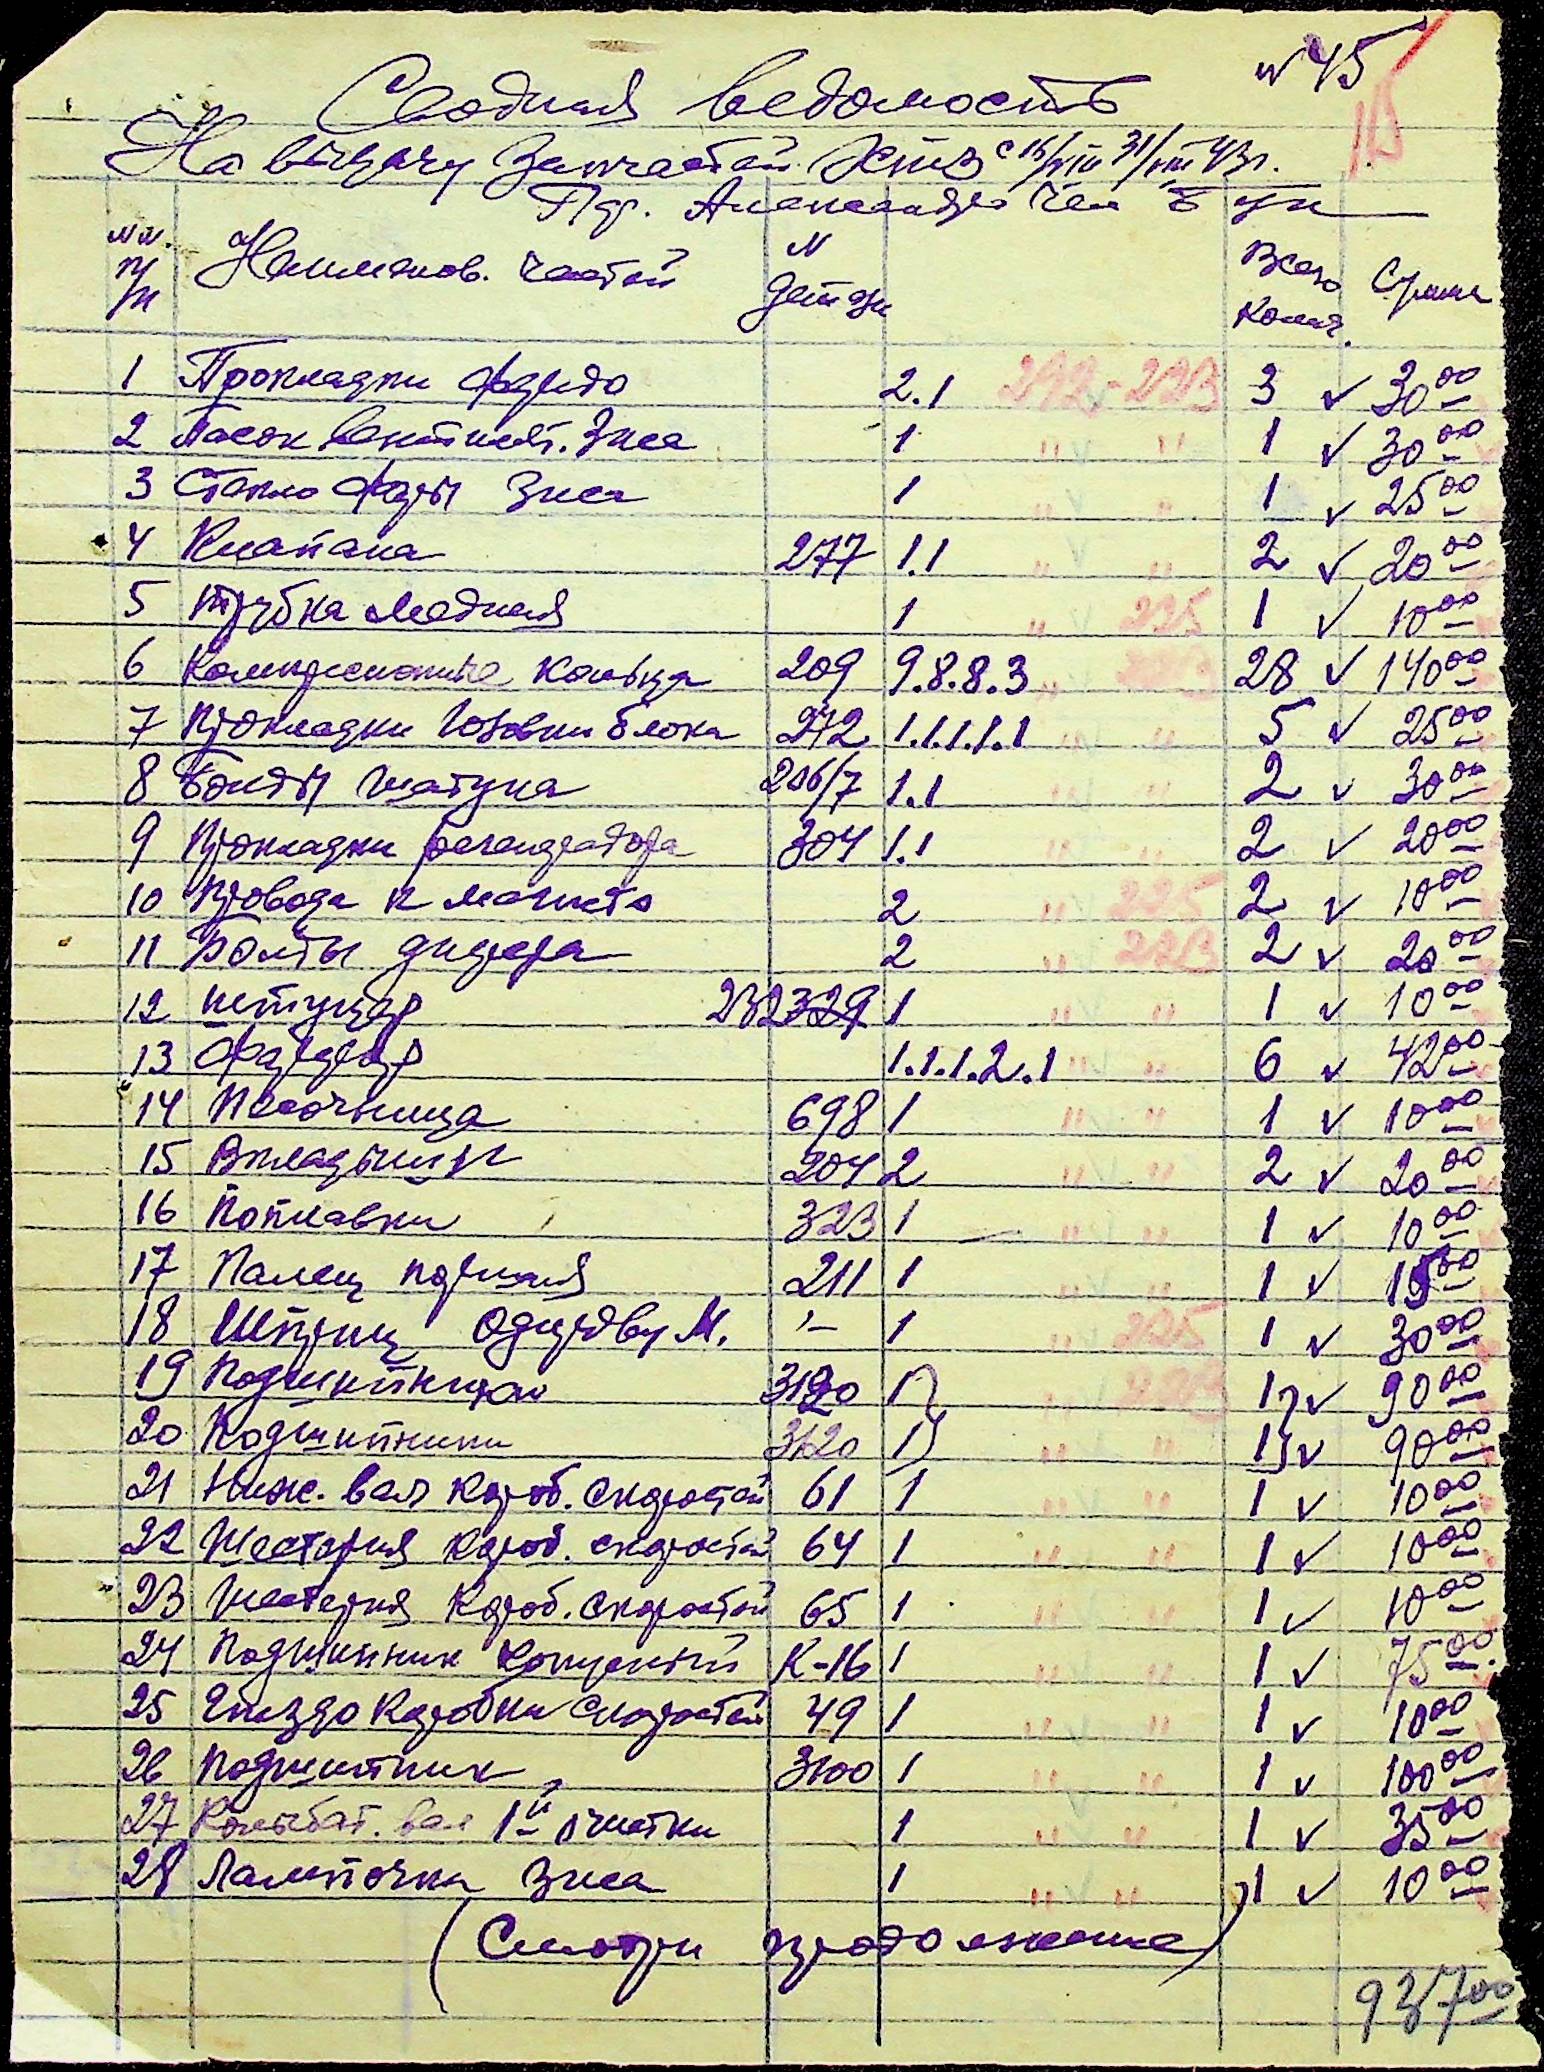 N 45
Сводная ведомость
На выдачу запчастей ХТЗ с 16/VIII 31/VIII 43 г.
NN п/п Наименов. частей N детали Всего колич. Сумма
1 Прокладки фордо 2.1 292 - 223 3 ✓ 30 00
2 Пасок вентилят. Зиса 1 " ✓ " 1 ✓ 30 00
3 Стекло фары Зиса 1 " " 1 ✓ 25 00
4 Клапана 277 1.1 " " 2 ✓ 20 00
5 Трубка медная 1 " 225 1 ✓ 10 00
6 Компресионые кольца 209 9.8.8.3 28 ✓ 140 00
7 Прокладки головки блока 272 1.1.1.1.1 " " 5 ✓ 25 00
8 Болты шатуна 206/7 1.1 " " 2 ✓ 30 00
9 Прокладки 304 1.1 " " 2 ✓ 20 00
10 Провода к магнето 2 " 225 2 ✓ 10 00
11 Болты 2 " 223 2 ✓ 20 00
12 Штуцер 232 329 1 " " 1 ✓ 10 00
13 1.1.1.2.1 " " 6 ✓ 42 00
14 698 1 " " 1 ✓ 10 00
15 Вкладыши 204 2 " " 2 ✓ 20 00
16 Поплавки 323 1 " " 1 ✓ 10 00
17 Палец поршня 211 1 " " 1 ✓ 15 00
18 Шприц М. 1 " 225 1 ✓ 30 00
19 Подшипники 3120 1 " 223 1 ✓ 90 00
20 Подшипники 3120 1 " " 1 ✓ 90 00
21 Ниж. вал короб. скоростей 61 1 " " 1 ✓ 10 00
22 Шестерня короб. скоростей 64 1 " " 1 ✓ 10 00
23 Шестерня короб. скоростей 65 1 " " 1 ✓ 10 00
24 Подшипник конусный К-16 1 " " 1 ✓ 75 00
25 Гнездо коробки скоростей 49 1 " " 1 ✓ 10 00
26 Подшипник 3100 1 " " 1 ✓ 100 00
27 Колебат. вал 1й очистки 1 " " 1 ✓ 35 00
28 Лампочки Зиса 1 " ✓ " 1 ✓ 10 00
(Смотри продолжение)
937 00